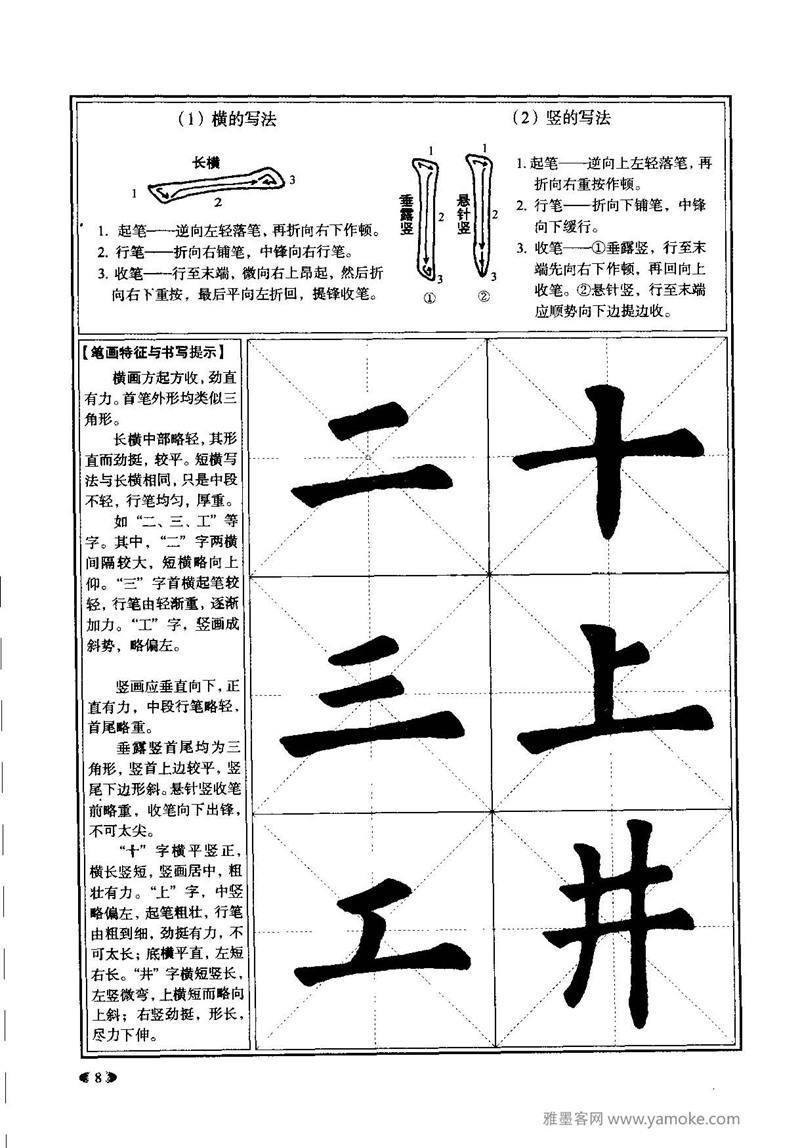 (1) 横的写法
长横
1
2
3
1. 起笔——逆向左轻落笔,再折向右下作顿。
2. 行笔——折向右铺笔,中锋向右行笔。
3. 收笔——行至末端,微向右上昂起,然后折
向右下重按,最后平向左折回,提锋收笔。
(2) 竖的写法
垂露竖
1
2
3
①
悬针竖
1
2
3
②
1. 起笔——逆向上左轻落笔,再
折向右重按作顿。
2. 行笔——折向下铺笔,中锋
向下缓行。
3. 收笔——①垂露竖,行至末
端先向右下作顿,再回向上
收笔。②悬针竖,行至末端
应顺势向下边提边收。
【笔画特征与书写提示】
横画方起方收,劲直
有力。首笔外形均类似三
角形。
长横中部略轻,其形
直而劲挺,较平。短横写
法与长横相同,只是中段
不轻,行笔均匀,厚重。
如“二、三、工”等
字。其中,“二”字两横
间隔较大,短横略向上
仰。“三”字首横起笔较
轻,行笔由轻渐重,逐渐
加力。“工”字,竖画成
斜势,略偏左。
竖画应垂直向下,正
直有力,中段行笔略轻,
首尾略重。
垂露竖首尾均为三
角形,竖首上边较平,竖
尾下边形斜。悬针竖收笔
前略重,收笔向下出锋,
不可太尖。
“十”字横平竖正,
横长竖短,竖画居中,粗
壮有力。“上”字,中竖
略偏左,起笔粗壮,行笔
由粗到细,劲挺有力,不
可太长;底横平直,左短
右长。“井”字横短竖长,
左竖微弯,上横短而略向
上斜;右竖劲挺,形长,
尽力下伸。
二 十
三 上
工 井
8
雅墨客网 www.yamoke.com